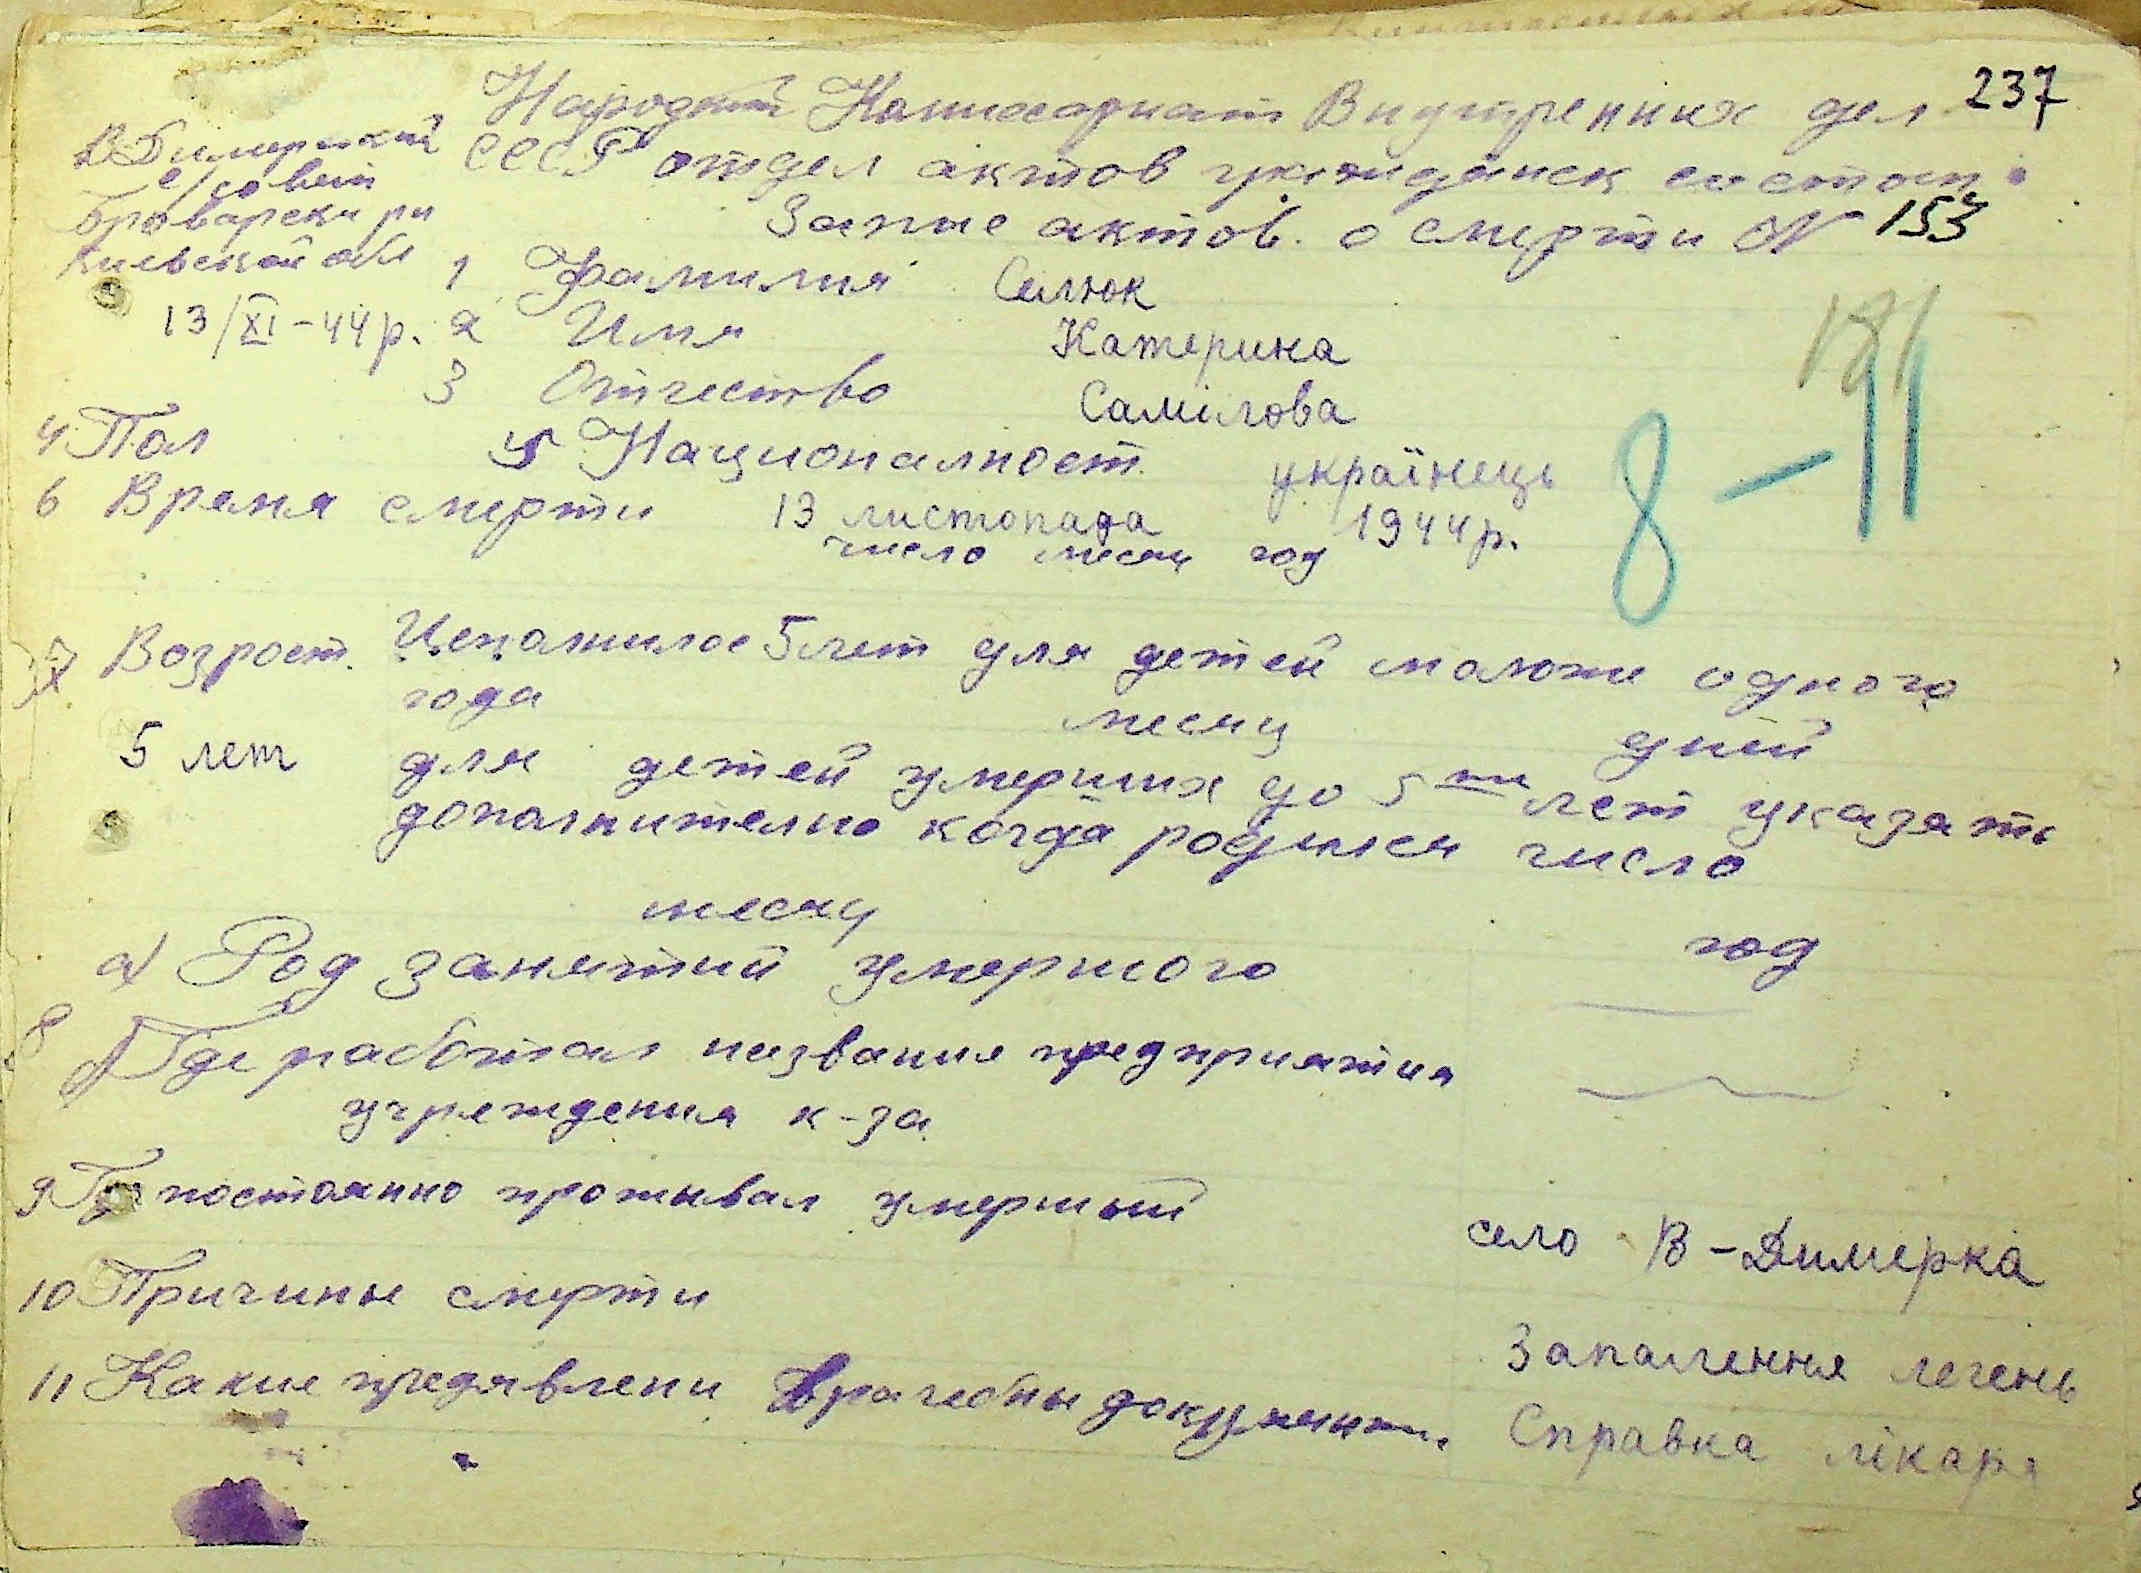 237
Народний Комиссариат Внутрених дел
В Димерский
с/совет
Броварски рн
Киевской обл
СССР отдел актов гражданск состоя
Запис актов о смерти N 153
13/XI-44р.
1 Фамилия Селюк
2 Имя Катерина
3 Отчество Самілова
181
8-11
4 Пол 5 Националност українець
6 Время смерти 13 листопада 1944р.
число месяц год
7 Возрост. Исполнилос 5 лет для детей моложе одного
года месяц дней
5 лет для детей умерших до 5 ти лет указать
дополнительно когда родился число
месяц год
а) Род занятий умершого
8
б) Где работал названия предприятия
учреждения к-за
9 Где постоянно проживал умерший село В-Димерка
10 Причины смерти Запалення легень
11 Какие предявлени врачебны документи. Справка лікаря